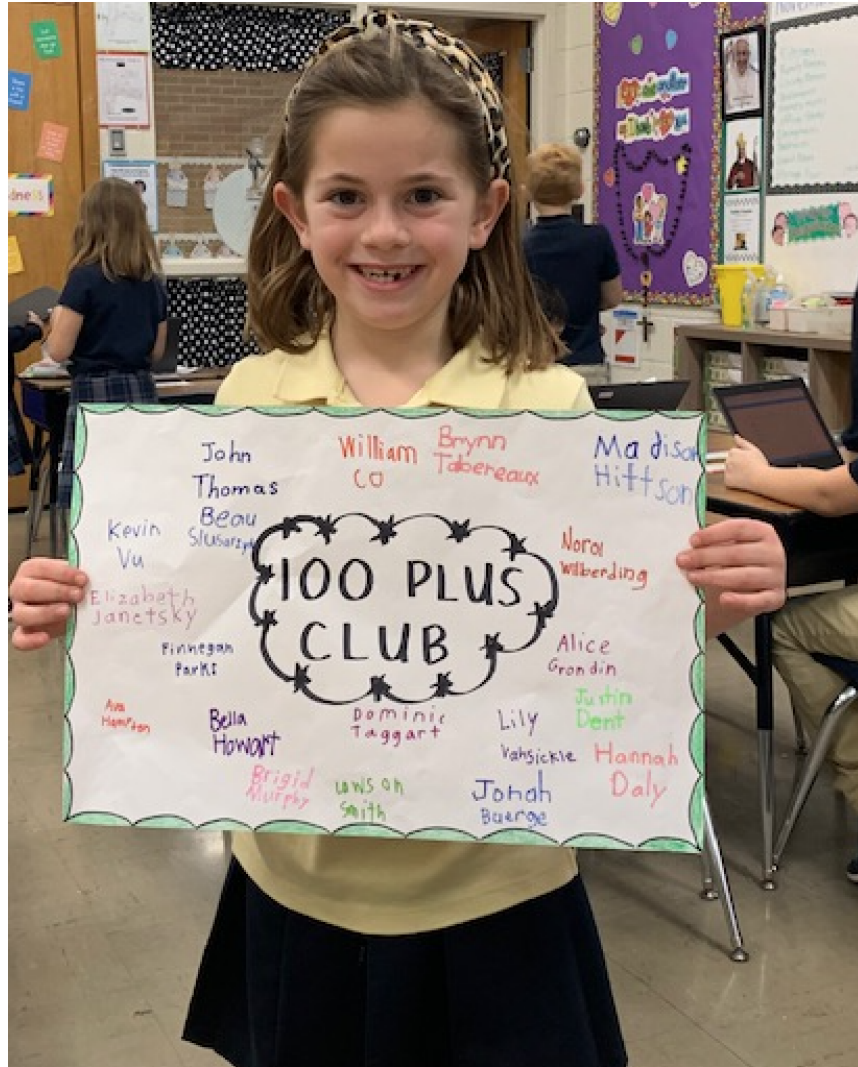 John
Thomas
Beau
William
CO
Brynn
Tabereaux
Madison
Hiffson
Kevin
Vu
100 PLUS
CLUB
Norol
Wilberding
Elizabeth
Janetsky
Finnegan
Parks
Alice
Grondin
Ava
Hampton
Bella
Howart
Dominic
Taggart
Lily
Vansickle
Justin
Dent
Hannah
Daly
Brigid
Murphy
Lawson
Smith
Jonah
Buerge